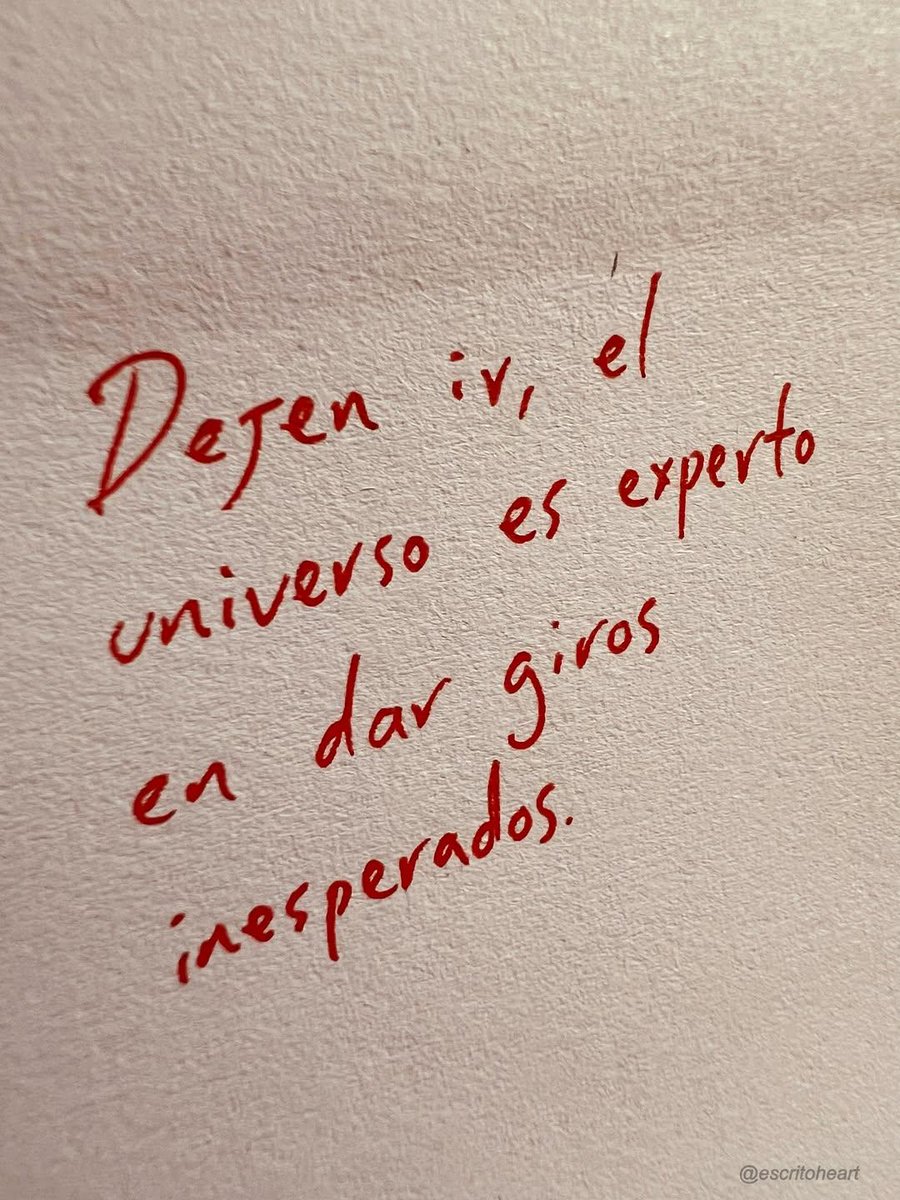 Dejen ir, el
universo es experto
en dar giros
inesperados.
@escritoheart